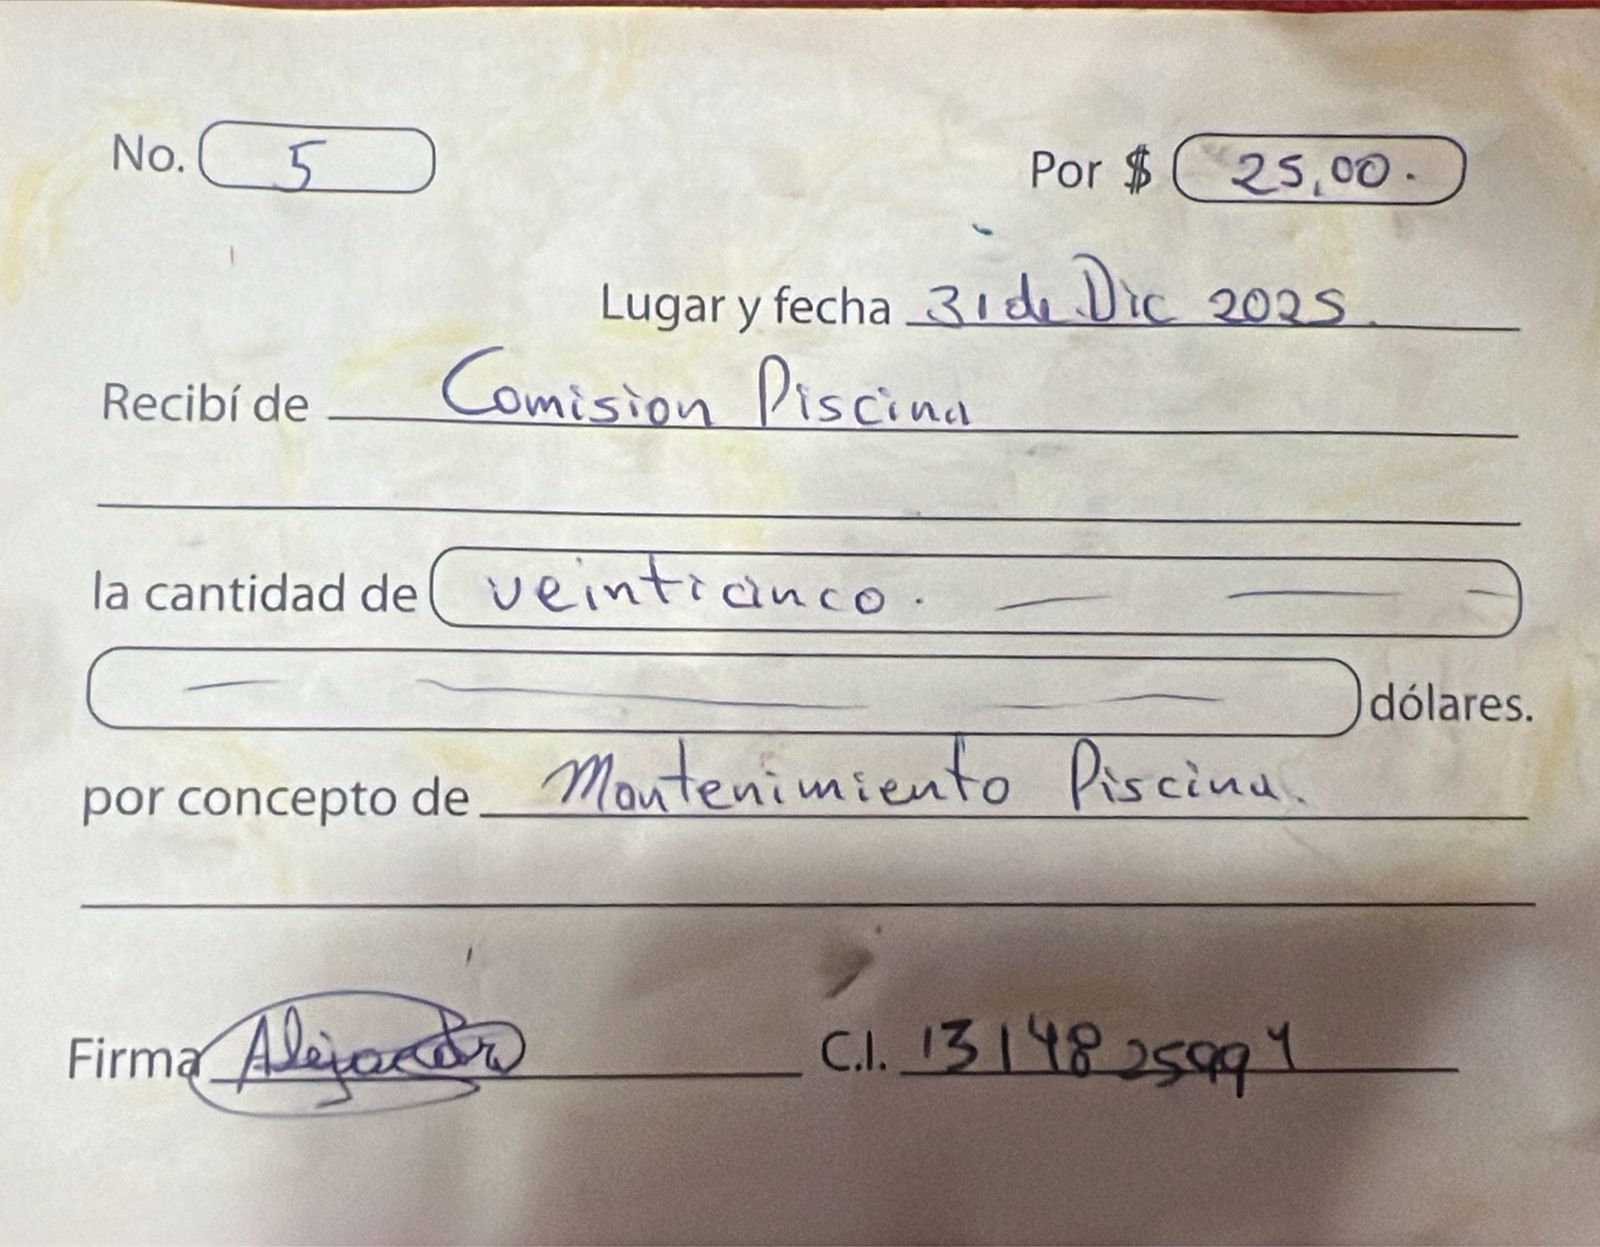 No. 5 Por $ 25,00.
Lugar y fecha 31 de Dic 2025.
Recibí de Comision Piscina
la cantidad de veinticinco.
dólares.
por concepto de Mantenimiento Piscina.
Firma Alejandro C.I. 131482